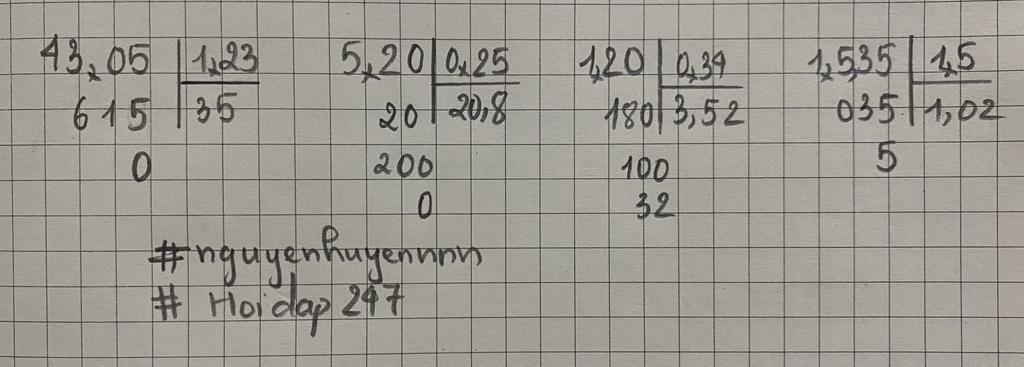 43,05 | 1,23 5,20 | 0,25 1,20 | 0,34 1,535 | 1,5
615 | 35 20 | 20,8 180 | 3,52 035 | 1,02
0 200 100 5
0 32
#nguyenhuyennnn
# Hoidap 247